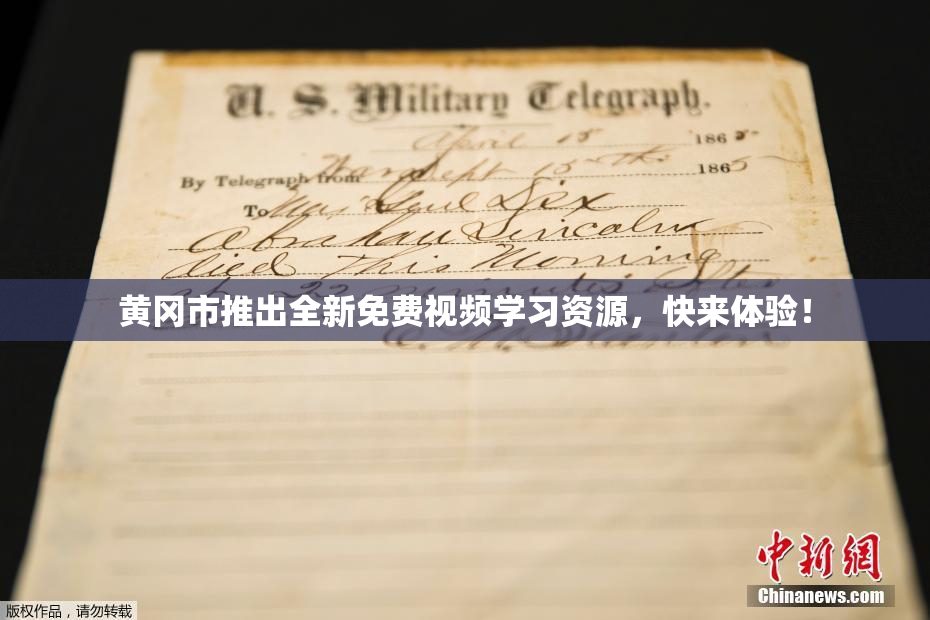 U. S. Military Telegraph.
April 15 1865
By Telegraph from War Dept 15th 1865
To Maj Genl Dix
Abraham Lincoln
died This Morning
at 22 minutes after
黄冈市推出全新免费视频学习资源，快来体验！
中新网
Chinanews.com
版权作品，请勿转载